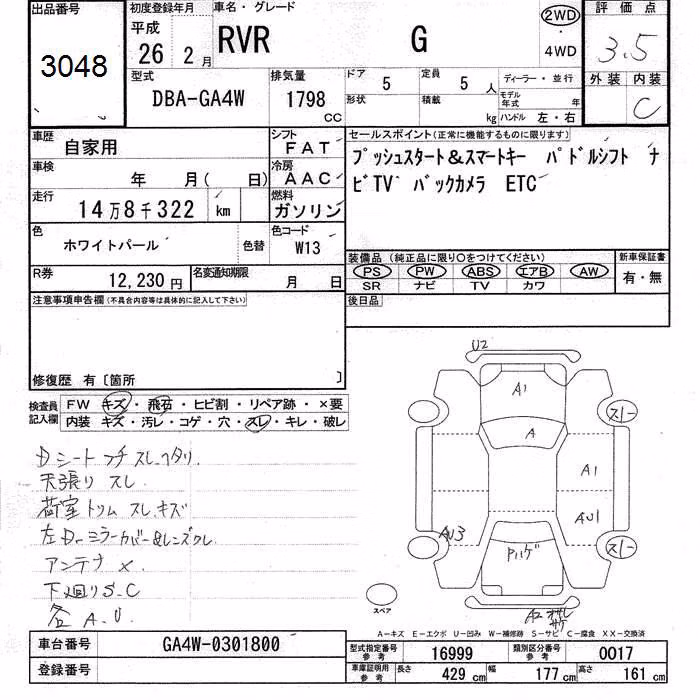 出品番号
3048
初度登録年月
平成
26 2月
車名・グレード
RVR G
2WD
・
4WD
評価点
3.5
外装 内装
C
型式
DBA-GA4W
排気量
1798
CC
ドア 5
定員 5 人
ディーラー・並行
形状
積載 kg
モデル年式 年
ハンドル 左・右
車歴
自家用
シフト
FAT
セールスポイント(正常に機能するものに限ります)
プッシュスタート&スマートキー パドルシフト ナ
ビTV バックカメラ ETC
車検
年 月( 日)
冷房
AAC
走行
14万8千322 km
燃料
ガソリン
色
ホワイトパール
色替
色コード
W13
装備品(純正品に限り〇をつけてください)
PS PW ABS エアB AW
SR ナビ TV カワ
新車保証書
有・無
R券
12,230円
名変通知期限
月 日
後日品
注意事項申告欄(不具合内容等は具体的に記入して下さい)
修復歴 有〔箇所 〕
検査員
記入欄
FW キズ・飛石・ヒビ割・リペア跡・×要
内装 キズ・汚レ・コゲ・穴・スレ・キレ・破レ
Dシートフチスレ、ヘタリ.
天張り スレ
荷室トリム スレ キズ
左Dーミラーカバー&レンズワレ
アンテナ ×
下廻りS.C
各 A.U
U2
A1
A
スレ
A1
AU1
AU3
Pハゲ
スレ
スペア
A2
A-キズ E-エクボ U-凹み W-補修跡 S-サビ C-腐食 XX-交換済
車台番号
GA4W-0301800
登録番号
型式指定番号
参考
16999
類別区分番号
参考
0017
車庫証明用
参考
長さ 429 cm
幅 177 cm
高さ 161 cm